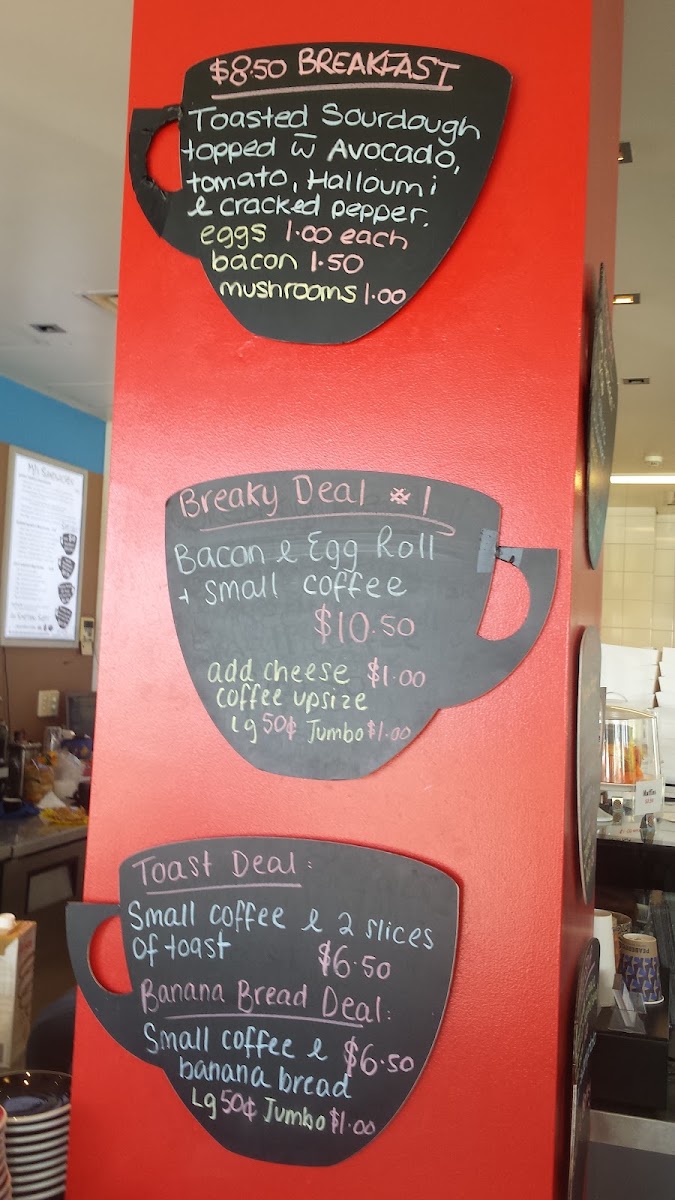 $8.50 BREAKFAST
Toasted Sourdough
topped w̄ Avocado,
tomato, Halloumi
& cracked pepper.
eggs 1.00 each
bacon 1.50
mushrooms 1.00
Breaky Deal #1
Bacon & Egg Roll
+ small coffee
$10.50
add cheese $1.00
coffee upsize
Lg 50¢ Jumbo $1.00
Toast Deal:
Small coffee & 2 slices
of toast $6.50
Banana Bread Deal:
Small coffee & $6.50
banana bread
Lg 50¢ Jumbo $1.00
Muffins